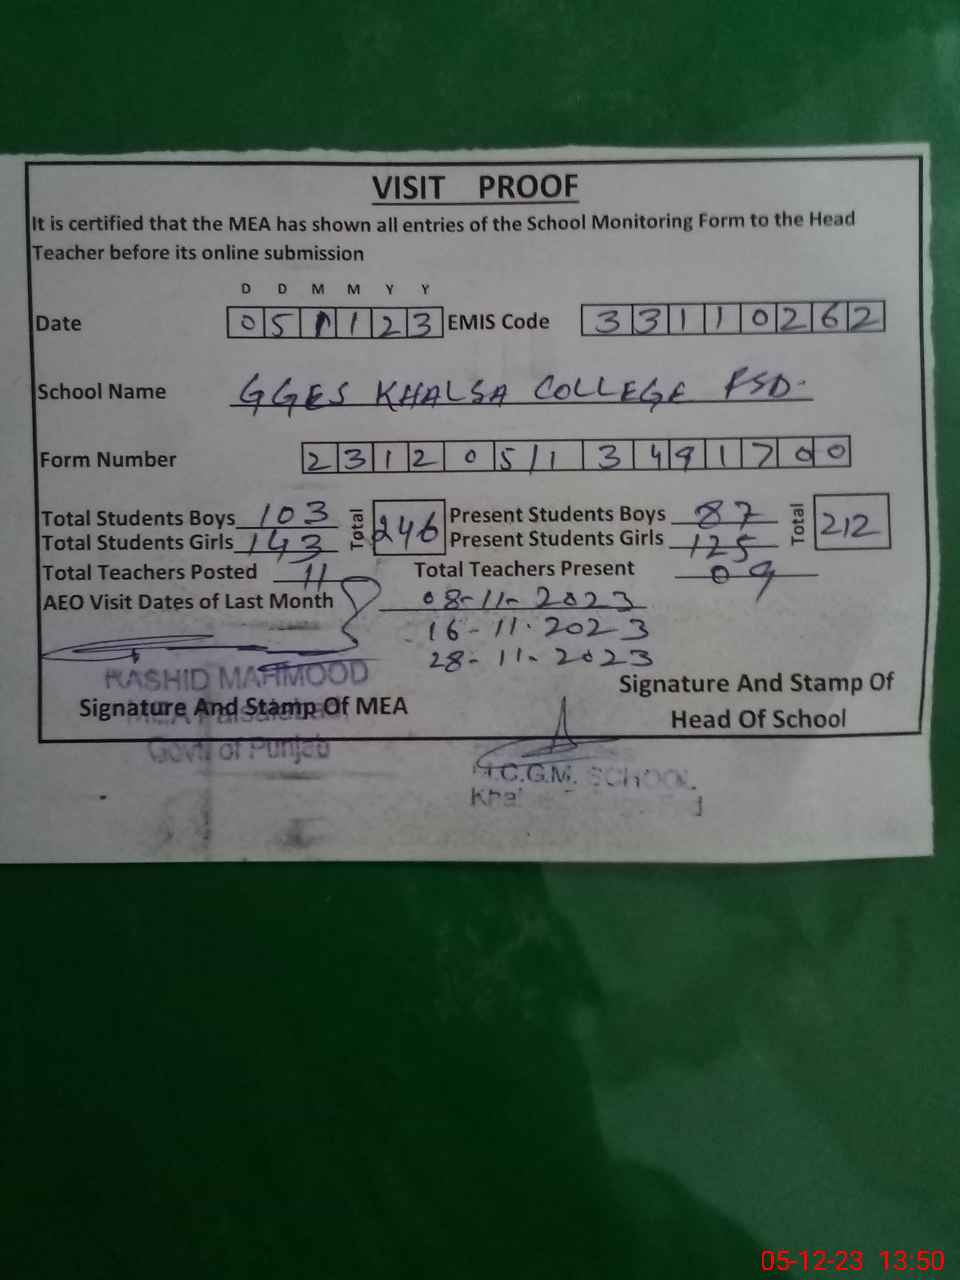 VISIT PROOF
It is certified that the MEA has shown all entries of the School Monitoring Form to the Head
Teacher before its online submission
D D M M Y Y
Date 0 5 1 1 2 3 EMIS Code 3 3 1 1 0 2 6 2
School Name GGES KHALSA COLLEGE FSD.
Form Number 2 3 1 2 0 5 1 3 4 9 1 7 0 0
Total Students Boys 103 Total 246 Present Students Boys 87 Total 212
Total Students Girls 143 Present Students Girls 125
Total Teachers Posted 11 Total Teachers Present 09
AEO Visit Dates of Last Month 08-11-2023
16-11.2023
28-11-2023
RASHID MAHMOOD
Signature And Stamp Of MEA
Signature And Stamp Of
Head Of School
MEA Faisalabad
Govt. of Punjab
M.C.G.M. SCHOOL
05-12-23 13:50